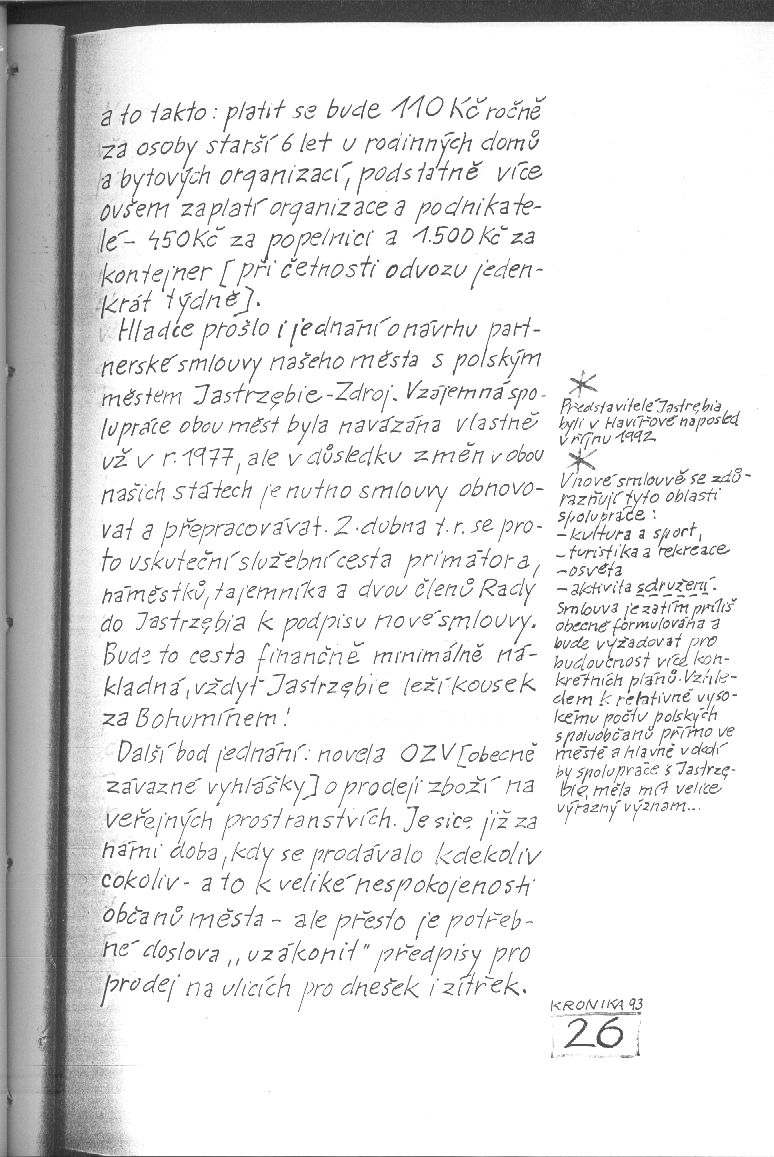 a to takto: platit se bude 110 Kč ročně
za osoby starší 6 let u rodinných domů
a bytových organizací, podstatně více
ovšem zaplatí organizace a podnikate-
lé - 450 Kč za popelnici a 1.500 Kč za
kontejner [při četnosti odvozu jeden-
krát týdně].
Hladce prošlo i jednání o návrhu part-
nerské smlouvy našeho města s polským
městem Jastrzębie-Zdroj. Vzájemná spo-
lupráce obou měst byla navázána vlastně
už v r. 1977, ale v důsledku změn v obou
našich státech je nutno smlouvy obnovo-
vat a přepracovávat. 2. dubna t.r. se pro-
to uskuteční služební cesta primátora,
náměstků, tajemníka a dvou členů Rady
do Jastrzębia k podpisu nové smlouvy.
Bude to cesta finančně minimálně ná-
kladná, vždyť Jastrzębie leží kousek
za Bohumínem!
Další bod jednání: novela OZV [obecně
závazné vyhlášky] o prodeji zboží na
veřejných prostranstvích. Je sice již za
námi doba, kdy se prodávalo kdekoliv
cokoliv - a to k veliké nespokojenosti
občanů města - ale přesto je potřeb-
né doslova ,,uzákonit" předpisy pro
prodej na ulicích pro dnešek i zítřek.
*
Představitelé Jastrębia
byli v Havířově naposled
v říjnu 1992
*
V nové smlouvě se zdů-
razňují tyto oblasti
spolupráce:
- kultura a sport,
- turistika a rekreace
- osvěta
- aktivita sdružení.
Smlouva je zatím příliš
obecně formulována a
bude vyžadovat pro
budoucnost více kon-
krétních plánů. Vzhle-
dem k relativně vyso-
kému počtu polských
spoluobčanů přímo ve
městě a hlavně v okolí
by spolupráce s Jastrzę-
bie měla mít velice
výrazný význam...
KRONIKA 93
26